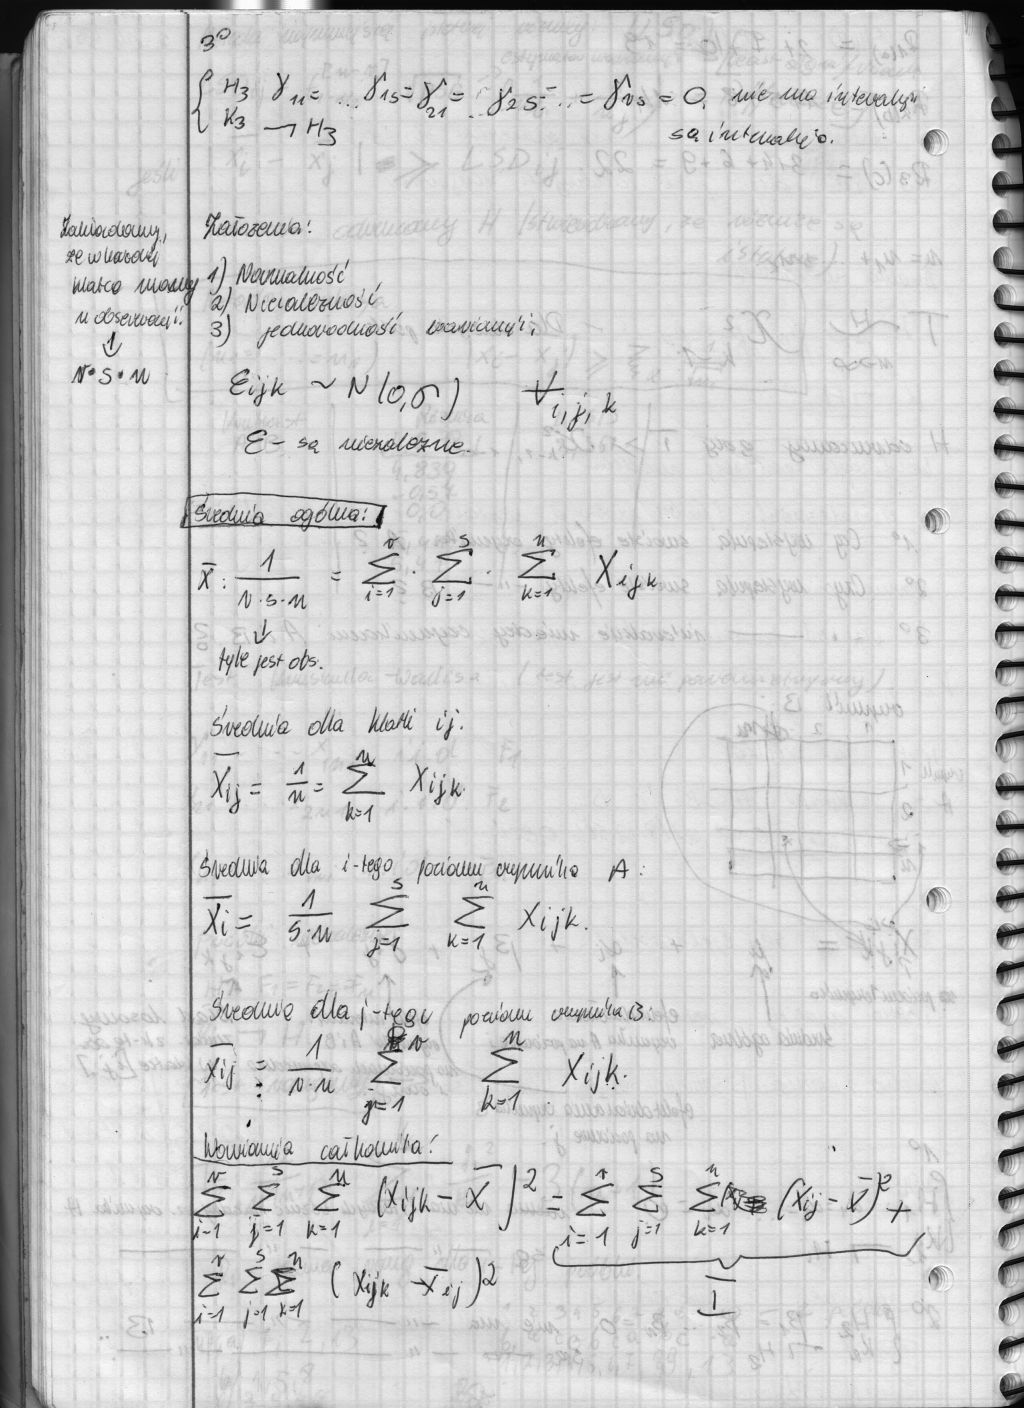 3°
H₃ γ₁₁ = ... γ₁s = γ₂₁ = ... γ₂s = ... = γrs = 0, nie ma interakcji
K₃ ¬ H₃ są interakcje.
Zakładamy,
że w każdej
klatce mamy
n obserwacji!
↓
r·s·n
Założenia:
1) Normalność
2) Niezależność
3) jednorodność wariancji;
Eijk ~ N(0,σ) ∀i,j,k
E - są niezależne.
Średnia ogólna:
x̄ : 1/(r·s·n) = Σ(i=1, r) · Σ(j=1, s) · Σ(k=1, n) Xijk
↓
tyle jest obs.
Średnia dla klatki ij.
X̄ij = 1/n = Σ(k=1, n) Xijk.
Średnia dla i-tego poziomu czynnika A:
X̄i = 1/(s·n) Σ(j=1, s) Σ(k=1, n) Xijk.
Średnia dla j-tego poziomu czynnika B:
X̄ij = 1/(r·n) Σ(j=1, r) Σ(k=1, n) Xijk.
Wariancja całkowita:
Σ(i=1, r) Σ(j=1, s) Σ(k=1, n) (Xijk - X̄)² = Σ(i=1, r) Σ(j=1, s) Σ(k=1, n) (Xij - X̄)² +
Σ(i=1, r) Σ(j=1, s) Σ(k=1, n) (Xijk - X̄ij)²
I